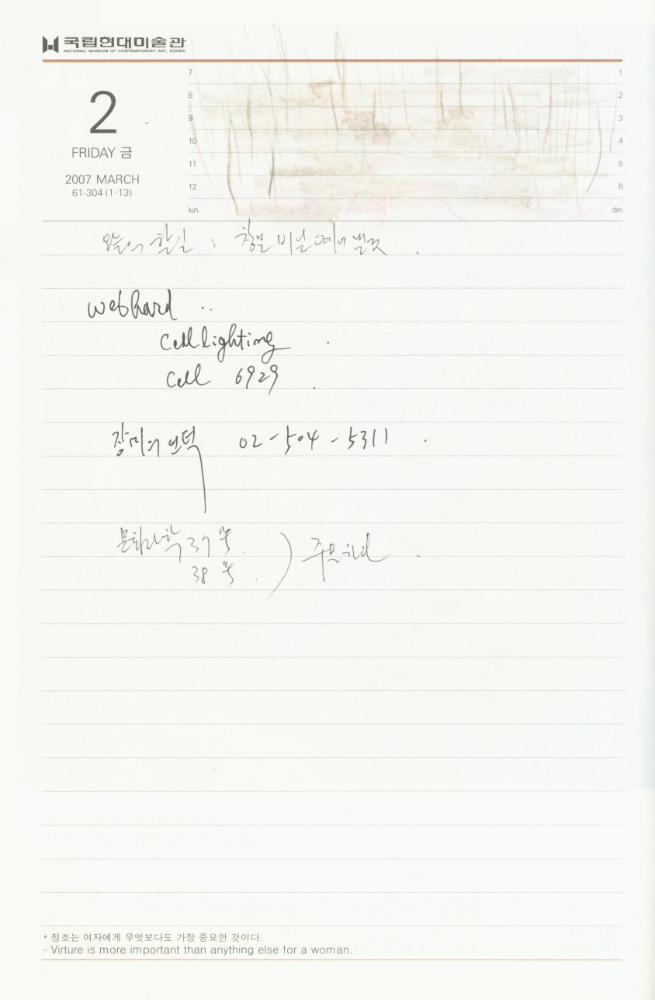 국립현대미술관
NATIONAL MUSEUM OF CONTEMPORARY ART, KOREA
2
FRIDAY 금
2007 MARCH
61-304 (1·13)
7 1
8 2
9 3
10 4
11 5
12 6
lun. din.
오늘의 할일 : 창문 비닐
webhard ..
Cell lighting
Cell 6929
장미의 언덕 02-504-5311
문화과학 37호
38호 ) 주문하다
* 정조는 여자에게 무엇보다도 가장 중요한 것이다.
- Virture is more important than anything else for a woman.